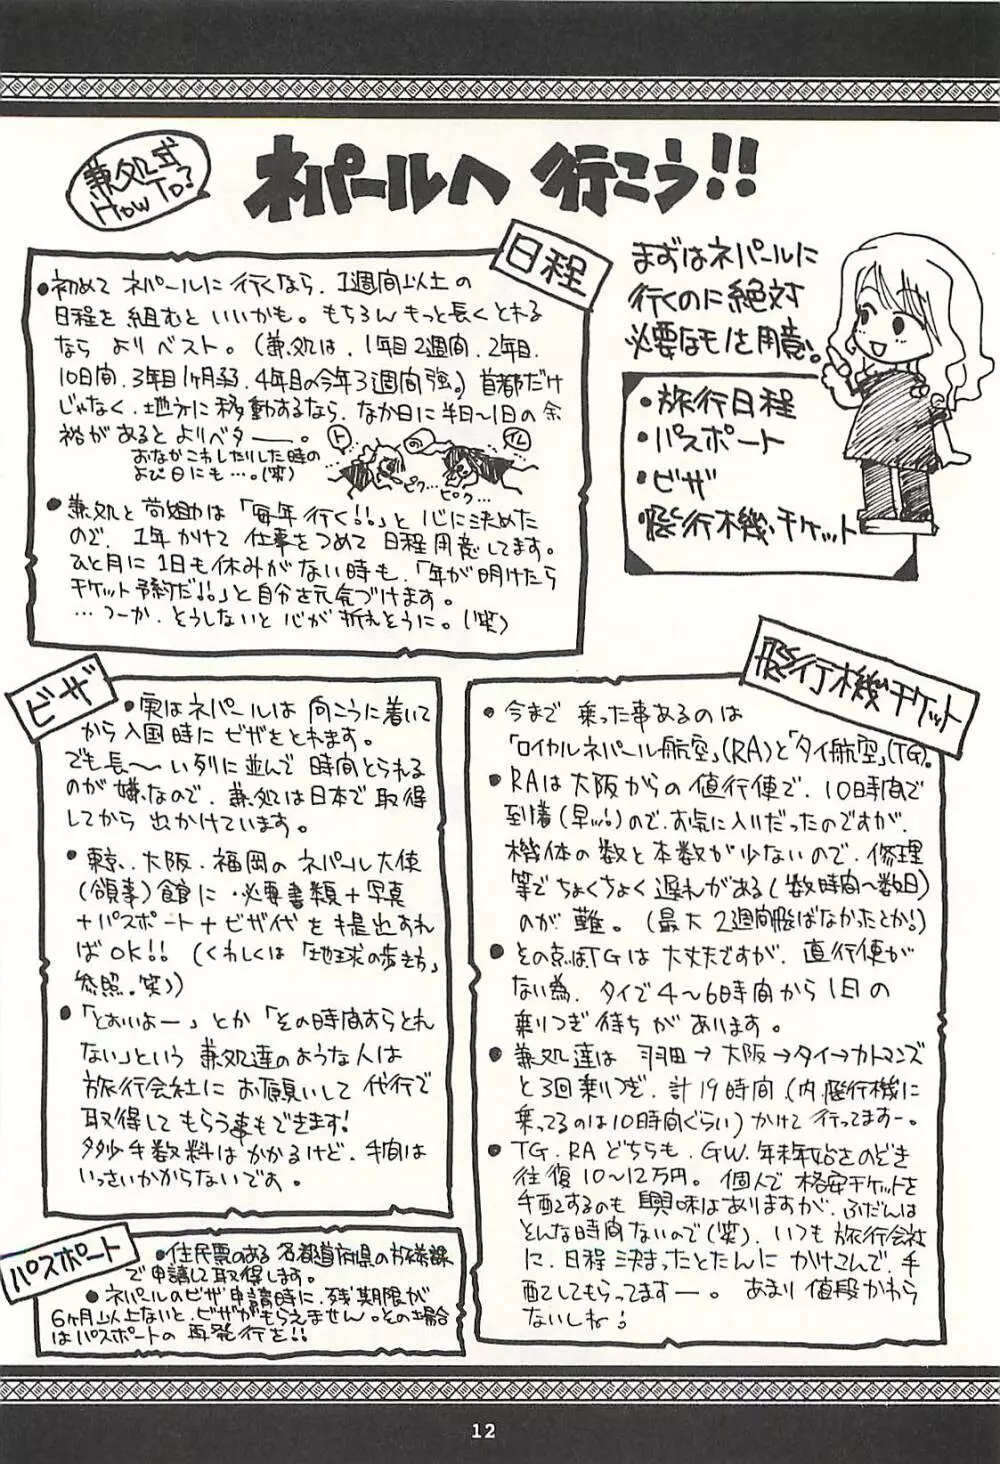 兼処式
HOW TO?
ネパールへ 行こう!!
まずはネパールに
行くのに絶対
必要なモノを用意。
・旅行日程
・パスポート
・ビザ
・飛行機チケット
日程
●初めて ネパールに 行くなら、1週間以上の
日程を組むと いいかも。もちろん もっと長く とれる
なら よりベスト。(兼処は、1年目2週間、2年目、
10日間、3年目1ヶ月弱、4年目の今年3週間強。) 首都だけ
じゃなく、地方に移動するなら、なか日に半日〜1日の余
裕があると よりベター——。
おなかこわしたりした時の
よび日にも…。(笑)
ト
の
イレ
ピク… ピク…
●兼処と 尚姐は「毎年 行く!!」と 心に決めた
ので、1年かけて 仕事をつめて 日程用意してます。
ひと月に1日も休みがない時も、「年が明けたら
チケット予約だ!!」と自分を元気づけます。
…つーか、そうしないと 心が 折れそうに。(笑)
ビザ
●実はネパールは 向こうに着いて
から入国時に ビザをとれます。
でも長〜い列に並んで 時間とられる
のが嫌なので、兼処は日本で取得
してから 出かけています。
●東京、大阪、福岡のネパール大使
(領事)館に、必要書類+写真
+パスポート+ビザ代を提出すれ
ばOK!! (くわしくは「地球の歩き方」
参照。笑))
●「とおいよー」とか「その時間すらとれ
ない」という 兼処達のような人は
旅行会社に お願いして 代行で
取得して もらう事もできます!
多少 手数料は かかるけど、手間は
いっさいかからないです。
パスポート
●住民票のある 各都道府県の旅券課
で申請して取得します。
●ネパールのビザ 申請時に、残期限が
6ヶ月以上ないと、ビザがもらえません。その場合
はパスポートの 再発行を!!
飛行機チケット
●今まで 乗った事あるのは
「ロイヤルネパール航空」(RA)と「タイ航空」(TG)。
●RAは大阪からの値行便で、10時間で
到着(早っ!)ので、お気に入りだったのですが、
機体の数と本数が少ないので、修理
等でちょくちょく遅れがある(数時間〜数日)
のが 難。(最大 2週間飛ばなかったとか!)
●その点はTGは 大丈夫ですが、直行便が
ない為、タイで4〜6時間から1日の
乗りつぎ待ちが あります。
●兼処達は 羽田→大阪→タイ→カトマンズ
と3回乗りつぎ、計19時間(内、飛行機に
乗ってるのは10時間ぐらい)かけて 行ってますー。
●TG、RA どちらも、GW、年末年始さのぞき
往復10〜12万円。個人で 格安チケットを
手配するのも 興味はありますが、ふだんは
そんな時間ないので(笑)、いつも 旅行会社
に、日程 決まったとたんに かけこんで、手
配してもらってますー。あまり値段かわら
ないしね!
12